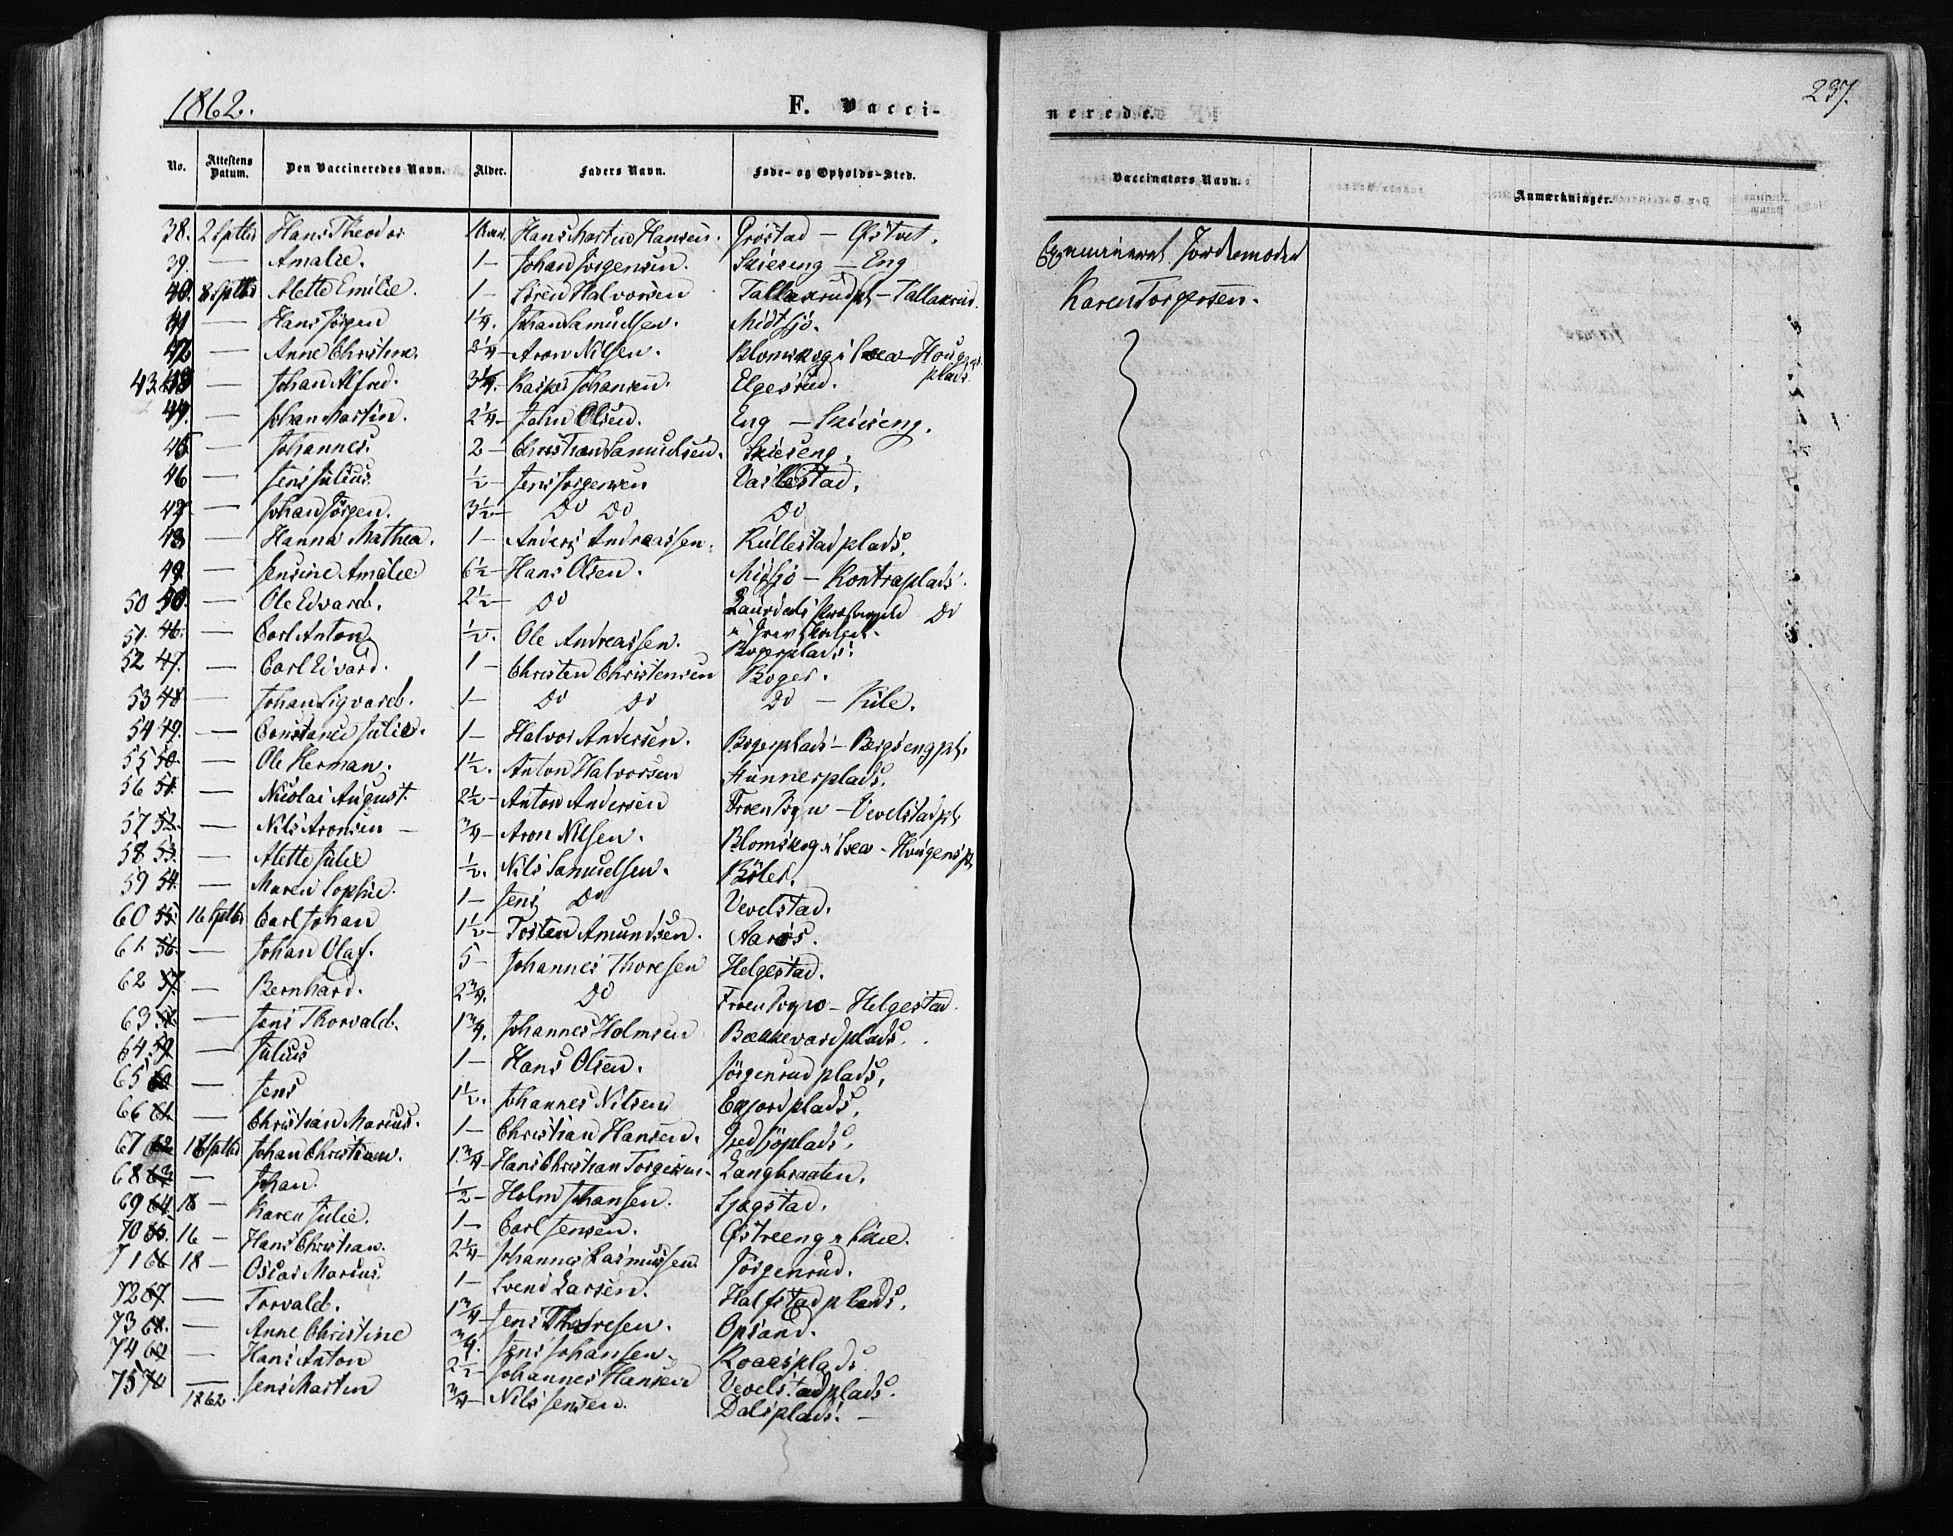 1862.
F. Vacci-
No. Attestens Datum. Den Vaccineredes Navn. Alder. Faders Navn. Føde- og Opholds-Sted.
38. 2 Septbr Hans Theodor Hans Martin Hansen. Grøstad — Østvet.
39. — Amalie. 1 — Johan Jørgensen. Skieseng — Eng
40. 8 Septbr Alette Emilie. 1 — Søren Halvorsen Tallaksrudpl — Tallaksrud.
41 — Hans Jørgen 1 1/4. Johan Samuelsen. Midtsjø.
42 — Anne Christine. Aron Nilsen. Blomskog i Svea — Hougens plads
43. — Johan Alfred. 3 1/4. Kasper Johansen. Elgesrud.
44. — Johan Martin. 2 1/4 — John Olsen. Eng — Skieseng.
45 — Johannes. 2 — Christian Samuelsen. Skieseng.
46 — Jens Julius 1/2 — Jens Jørgensen Vaslestad.
47 — Johan Jørgen. 3 1/2 — Do Do Do
48 — Hanna Mathea. 1 — Anders Andreassen. Kullestadplads.
49. — Jensine Amalie 6 1/2 — Hans Olsen. Midsjø — Kontraplads.
50 50. — Ole Edvard. 2 1/2 — Do Do
51. 46. — Carl Anton 1/2. Ole Andreassen. Bogerplads.
52 47. — Carl Edvard. 1 — Christen Christensen Boger.
53 48 — Johan Sigvard. 1 — Do Do Do — Kule.
54 49. — Constance Julie. 1 — Halvor Andersen. Bogerplads — Bergsengpl.
55 50. — Ole Herman. 1 1/2. Anton Halvorsen Hunnerplads.
56 51. — Nicolai August. 2 1/2 — Anton Andersen Froen Sogn — Vevelstadpl.
57 52. — Nils Aronsen — 3/4 — Aron Nilsen. Blomskog i Svea — Hougenspl.
58 53. — Alette Julie 1/2. Nils Samuelsen. Bøler.
59 54. — Maren Sophie. 1 — Jens Do Vevelstad.
60 55. 16 Septbr Carl Johan 1 1/2 — Tosten Amundsen. Aarøs.
61. 56. — Johan Olaf. 5 — Johannes Thoresen Helgestad.
62 57. — Bernhard. 2 3/4. Do Froen Sogn — Helgestad.
63 58. — Jens Thorvald. 1 3/4. Johannes Holmsen Bækkevardplads.
64. 59 — Julius 1 — Hans Olsen. Jørgenrud plads.
65 60 — Jens 1 1/2. Johannes Nilsen Enjordplads.
66 61. — Christian Marius. 1 — Christian Hansen. Gjedsjøplads.
67 62 18 Septbr Johan Christian. 1 3/4 — Hans Christian Torgersen. Langbraaten.
68 63 — Johan 1/2 — Holm Johansen. Sjøgstad.
69 64. 18 — Karen Julie. 1 — Carl Jensen. Østreeng i Skie.
70 65. 16 — Hans Christian. 2 1/4 — Johannes Rasmussen. Jørgenrud.
71 66 18 — Oscar Marius. 1 — Svend Larsen. Halfstadplads.
72 67 — Torvald. 1 3/4 — Jens Thoresen. Opsand.
73 68. — Anne Christine 3/4. Jens Johansen. Roaasplads
74 69 — Hans Anton 2 1/2 Johannes Hansen Vevelstadplads.
75 70 — Jens Martin 3/4 — Nils Jensen. Dalsplads. —
1862.
237.
nerede.
Vaccinators Navn. Anmærkninger.
Examineret Jordemoder
Karen Torgersen.